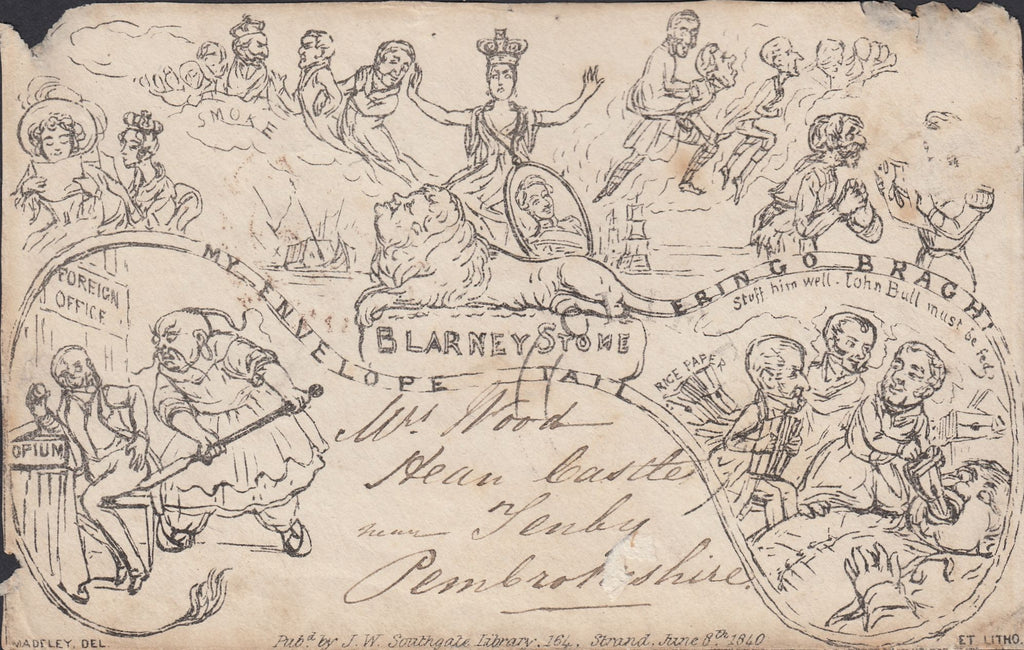 SMOKE
MY ENVELOPE TAIL
ERINGO BRAGH!
FOREIGN
OFFICE
OPIUM
BLARNEY STONE
Stuff him well. John Bull must be fed.
RICE PAPER
Mrs. Wood
Hean Castle
near Tenby
Pembrokeshire
MADELEY, DEL.
Pubd. by J. W. Southgate Library, 164, Strand. June 8th 1840
ET LITHO.